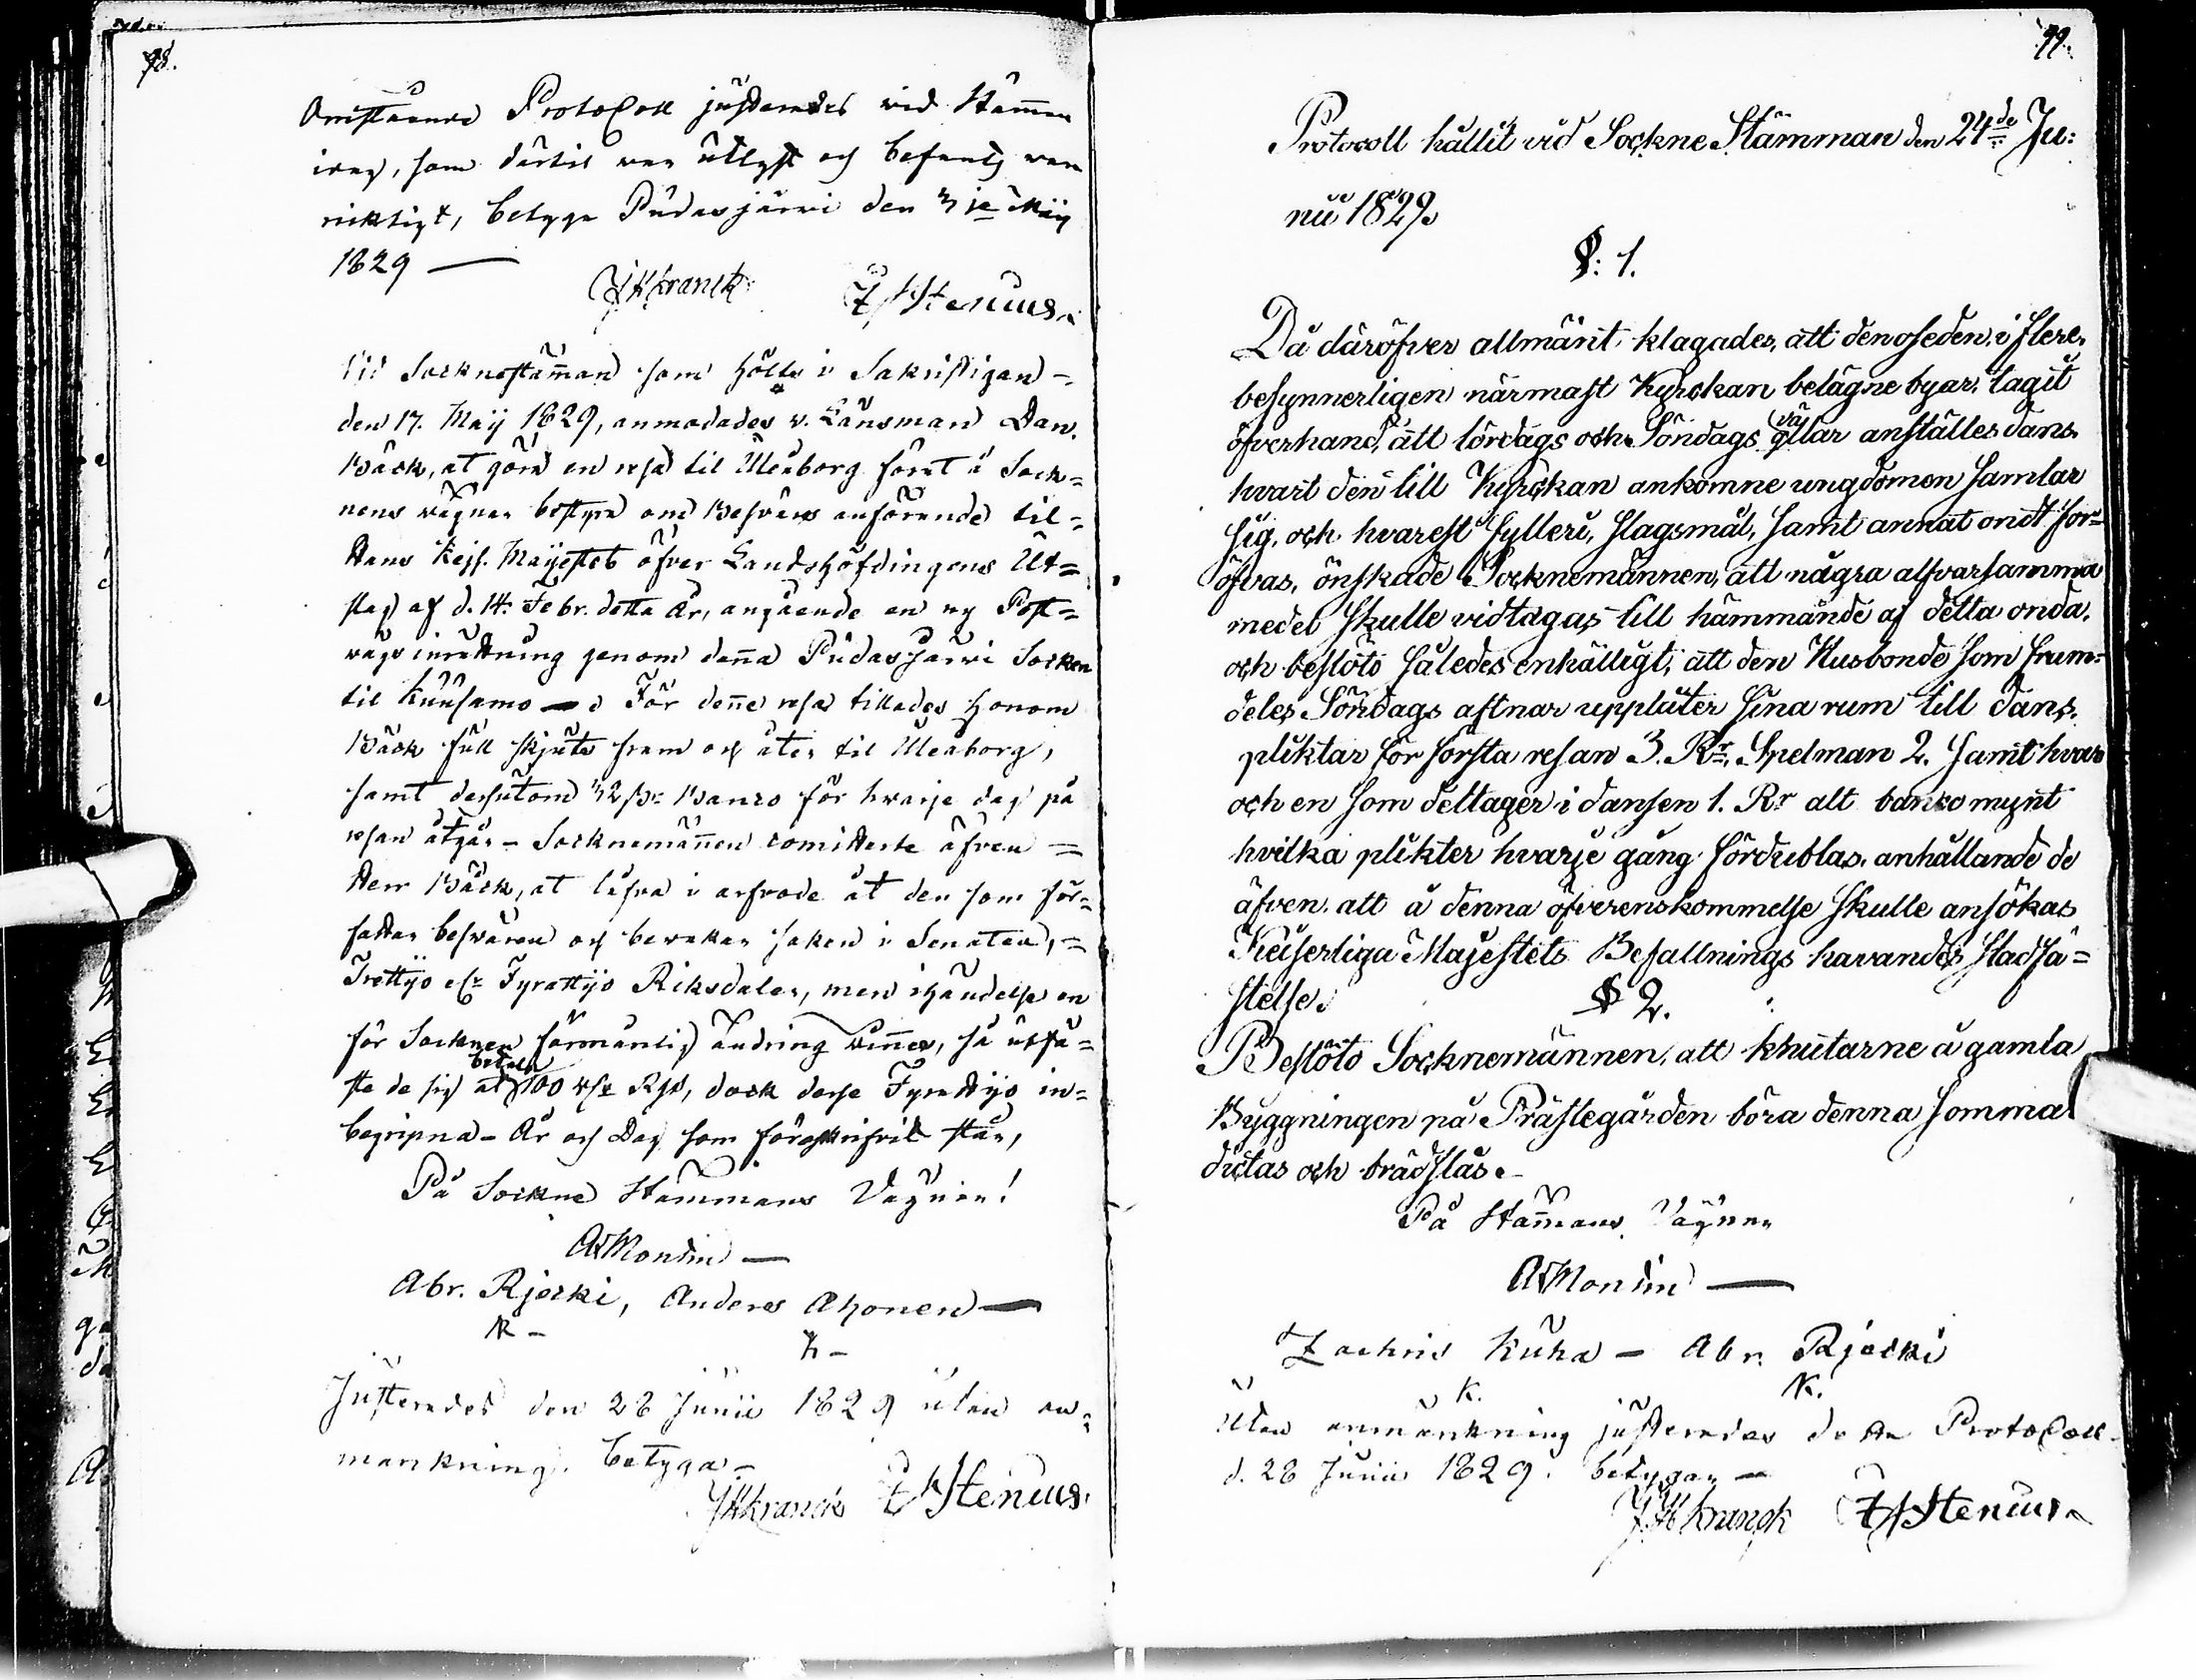 98.
Protocoll justerades vid Stämman
idag, som dertil var utlyst och befants vara
riktigt, betyga Pudasjärvi den 31e Maij
1829 —
JWKranck ZHStenius
Vid Socknestämman som hölts i Sakristigan –
den 17. Maij 1829, anmodades v. Länsman Dan.
Bäck, at göra en resa til Uleåborg samt å Sock=
nens vägnar bestyra om Besvärs anförande til=
Hans Kejs. Majestet öfver Landshöfdingens Ut=
slag af d. 14. Febr. detta År, angående en ny Post=
vägs inrättning genom denna Pudasjärvi Socken
til Kuusamo — För denne resa tillades honom
Bäck full skjuts fram och åter til Uleåborg,
samt dessutom 32 sk: Banco för hvarje dag på
resan åtgår – Socknemännen comitterte äfven =
Herr Bäck, at lofva i arfvode åt den som för=
fattar besvären och bevakar saken i Senaten, =
Trettijo a Fyrattijo Riksdaler, men ihändelse en
för Socknen förmånlig ändring vinnes, så utfä=
ste de sig at betala 100 Rgs, dock desse Fyrattijo in=
begripna – År och Dag som föreskrifvit står,
På Sockne Stämmans Vägnar!
AMontin —
Abr. Rjecki, Anders Ahonen —
K – h –
Justerades den 28 Junii 1829 utan an=
märkning. betyga –
JWKranck ZHStenius
99.
Protocoll hållit vid Sockne Stämman den 24de Ju:
nii 1829.
§: 1.
Då däröfver allmänt klagades, att den oseden i flere,
besynnerligen närmast Kyrckan belägne byar, tagit
öfverhand, att lördags och Söndags qvällar anställes dans.
hvart den till Kyrckan ankomne ungdomen samlar
sig, och hvarest fylleri, slagsmål, samt annat ondt för=
öfvas, önskade Socknemännen, att några alfvarsamma
medel skulle vidtagas till hämmande af detta onda.
och beslöto således enhälligt, att den Husbonde som fram=
deles Söndags aftnar upplåter sina rum till dans,
pliktar för första resan 3. Rr, Spelman 2. samt hvar
och en som deltager i dansen 1. Rr alt banco mynt
hvilka plikter hvarje gång fördublas. anhållande de
äfven. att å denna öfverenskommelse skulle ansökas
Keijserliga Majestets Befallnings havandes stadfä=
stelse.
§ 2.
Beslöto Socknemännen, att knutarne å gamla
Byggningen på Prästegården böra denna sommar
dictas och brädslås. –
På Stämmans Vägnar
AMontin —
Zachris Kuha – Abr. Rjecki
K. K.
Utan anmärkning justerades detta Protocoll
d. 28 Junii 1829. betyga, –
JWKranck ZHStenius